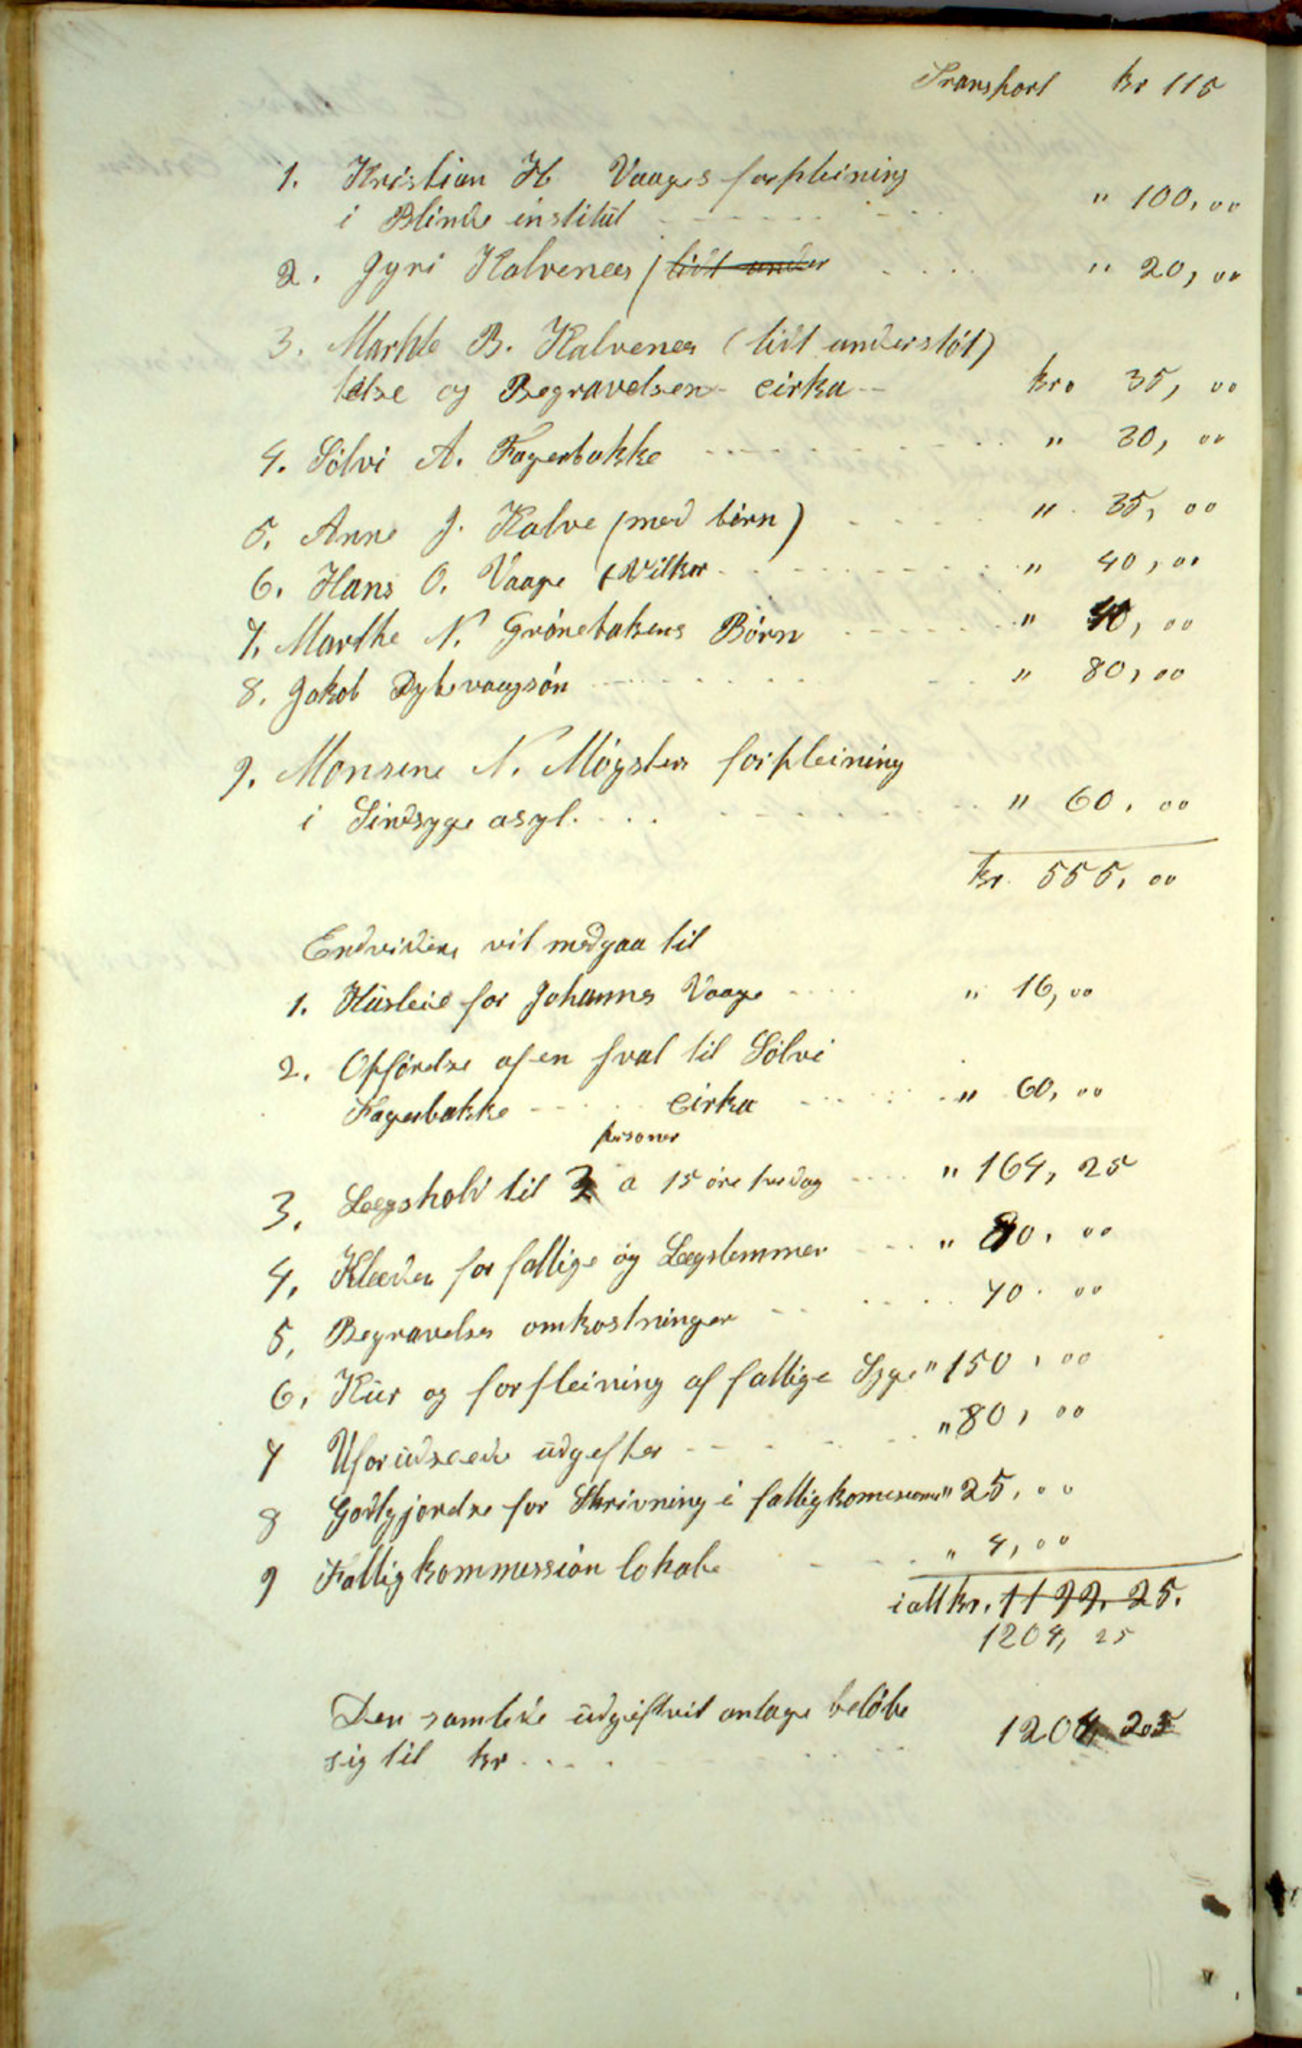 Transport kr 115
1. Kristian H Vaages forpleining
i Blinde institut - - - " 100,00
2. Gyri Kalvenes (lidt under . . . . " 20,00
3. Marthe B. Kalvenes (lidt understøt)
telse og Begravelsen - cirka - - kr. 35,00
4. Sölvi A. Fagerbakke - - - - " 30,00
5. Anne J. Kalve (med börn) - - - - " 35,00
6. Hans O. Vaage (Vilkor - - - - " 40,00
7. Marthe N. Grönebakens Börn - - - - " 40,00
8. Jakob Dybevaagsön - - - - " 80,00
9. Monsine N. Mögsters forpleining
i Sindsyge asyl. . . . - - - " 60,00
kr. 555,00
Endvidere vil medgaa til
1. Husleie for Johannes Vaage - - - - " 16,00
2. Opförelse af en sval til Sölvi
Fagerbakke - - - cirka - - - - " 60,00
personer
3. Lægshold til 3 a 15 öre pr dag - - - - " 164,25
4. Klæder for fattige og Lægslemmer - - - " 80,00
5, Begravelses omkostninger - - . . . . 70.00
6, Kur og forpleining af fattige Syge " 150,00
7 Uforudseede udgifter - - - - . " 80,00
8 Godtgjörelse for Skrivning i fattigkomisionen " 25,00
9 Fattigkommission lokale - - - . " 4,00
i alt kr. 1199.25.
1204,25
Den samlede udgift vil antage beløbe
sig til kr . . . . - - - 1204,25